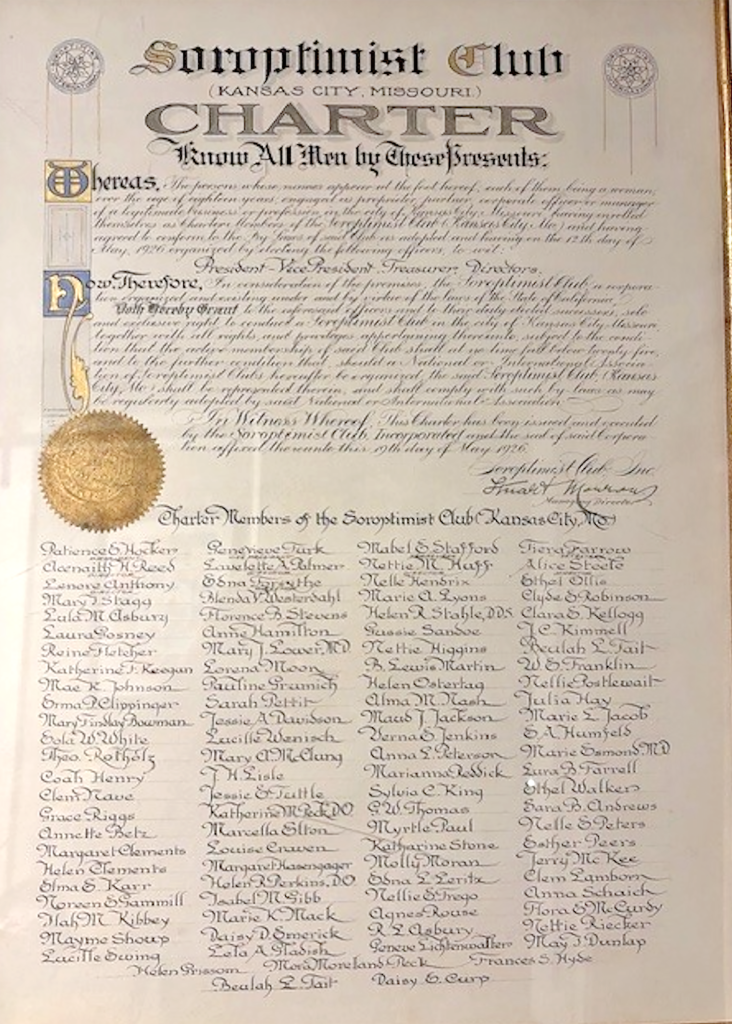 Soroptimist Club
(KANSAS CITY, MISSOURI.)
CHARTER
Know All Men by These Presents:
Whereas, The persons whose names appear at the foot hereof, each of them being a woman,
over the age of eighteen years, engaged as proprietor, partner, corporate officer or manager
of a legitimate business or profession in the city of Kansas City, Missouri having enrolled
themselves as Charter Members of the Soroptimist Club (Kansas City, Mo.) and having
agreed to conform to the By-Laws of said Club as adopted and having on the 12th day of
May, 1926 organized by electing the following officers, to wit:
President-Vice President, Treasurer, Directors.
Now, Therefore, In consideration of the premises, the Soroptimist Club, a corpora-
tion organized and existing under and by virtue of the laws of the State of California
Doth Hereby Grant to the aforesaid officers and to their duly elected successors, sole
and exclusive right to conduct a Soroptimist Club in the city of Kansas City, Missouri,
together with all rights and privileges appertaining thereunto, subject to the condi-
tion that the active membership of said Club shall at no time fall below twenty five,
and to the further condition that, should a National or International Associa-
tion of Soroptimist Clubs hereafter be organized, the said Soroptimist Club, (Kansas
City, Mo.) shall be represented therein, and shall comply with such by-laws as may
be regularly adopted by said National or International Association.
In Witness Whereof, This Charter has been issued and executed
by the Soroptimist Club, Incorporated and the seal of said Corpora-
tion affixed thereunto this 19th day of May 1926.
Soroptimist Club Inc.
Stuart Morrow
Managing Director
Charter Members of the Soroptimist Club (Kansas City, Mo.)
Patience S. Hocker Genevieve Turk Mabel E. Stafford Fiera Farrow
H. Reed A. Palmer Nettie M. Huff Alice Steele
Lenore Anthony Edna Forsythe Nelle Hendrix Ethel Ollis
Mary T. Stagg Blenda V. Westerdahl Marie A. Lyons Clyde E. Robinson
Lula M. Asbury Florence B. Stevens Helen R. Stahle, D.D.S. Clara E. Kellogg
Laura Gosney Anne Hamilton Gussie Sandoe J.C. Kimmell
Reine Fletcher Mary J. Lower M.D. Nettie Higgins Beulah L. Tait
Katherine F. Keegan Lorena Moon B. Lewis Martin W.E. Franklin
Mae K. Johnson Pauline Gramich Helen Ostertag Nellie Postlewait
Erma P. Clippinger Sarah Pettit Alma M. Nash Julia Hay
Mary Findlay Bowman Jessie A. Davidson Maud J. Jackson Marie L. Jacob
W. White Lucille Wenisch Verna E. Jenkins E.A. Humfeld
Theo. Rotholz Mary A. McClung Anna L. Peterson Marie Esmond M.D.
Coah Henry J.H. Lisle Marianna Reddick Lura B. Farrell
Clem Nave Jessie E. Tuttle Sylvia C. King Ethel Walker
Grace Riggs Katherine M. Peck, D.O. G.W. Thomas Sara B. Andrews
Annette Betz Marcella Elton Myrtle Paul Nelle E. Peters
Margaret Clements Louise Craven Katharine Stone Esther Peers
Helen Clements Margaret Hasengager Molly Moran Jerry McKee
Elma E. Karr Helen R. Perkins, D.O. Edna L. Leritz Clem Lamborn
Noreen E. Gammill Isabel M. Gibb Nellie E. Frego Anna Schaich
M. Kibbey Marie K. Mack Agnes Rouse Flora E. McCurdy
Mayme Shoup Daisy D. Emerick R.L. Asbury Nettie Riecker
Lucille Ewing Lela A. Gladish Geneve Lichtenwalter May J. Dunlap
Helen Grissom Mora Moreland Peck Frances S. Hyde
Beulah L. Tait Daisy E. Curp